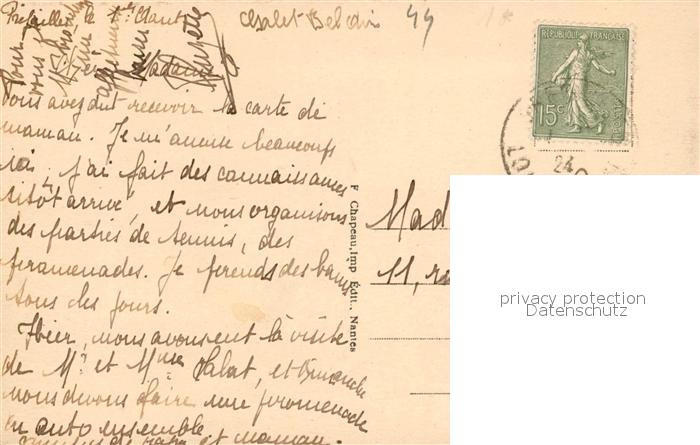 Préfailles
Chalet Bel air 44
Madame
vous avez dut recevoir la carte de
maman. Je m'amuse beaucoup
ici, j'ai fait des connaissances
sitôt arrivé, et nous organisons
des parties de tennis, des
promenades. Je prends des bains
tous les jours.
Hier, nous avons eut la visite
de Mr et Mme et Dimanche
nous devons faire une promenade
en auto ensemble.
de papa et maman.
F. Chapeau, Imp. Édit., Nantes
RÉPUBLIQUE FRANÇAISE
15c
POSTES
24
Mad
11, ru
privacy protection
Datenschutz